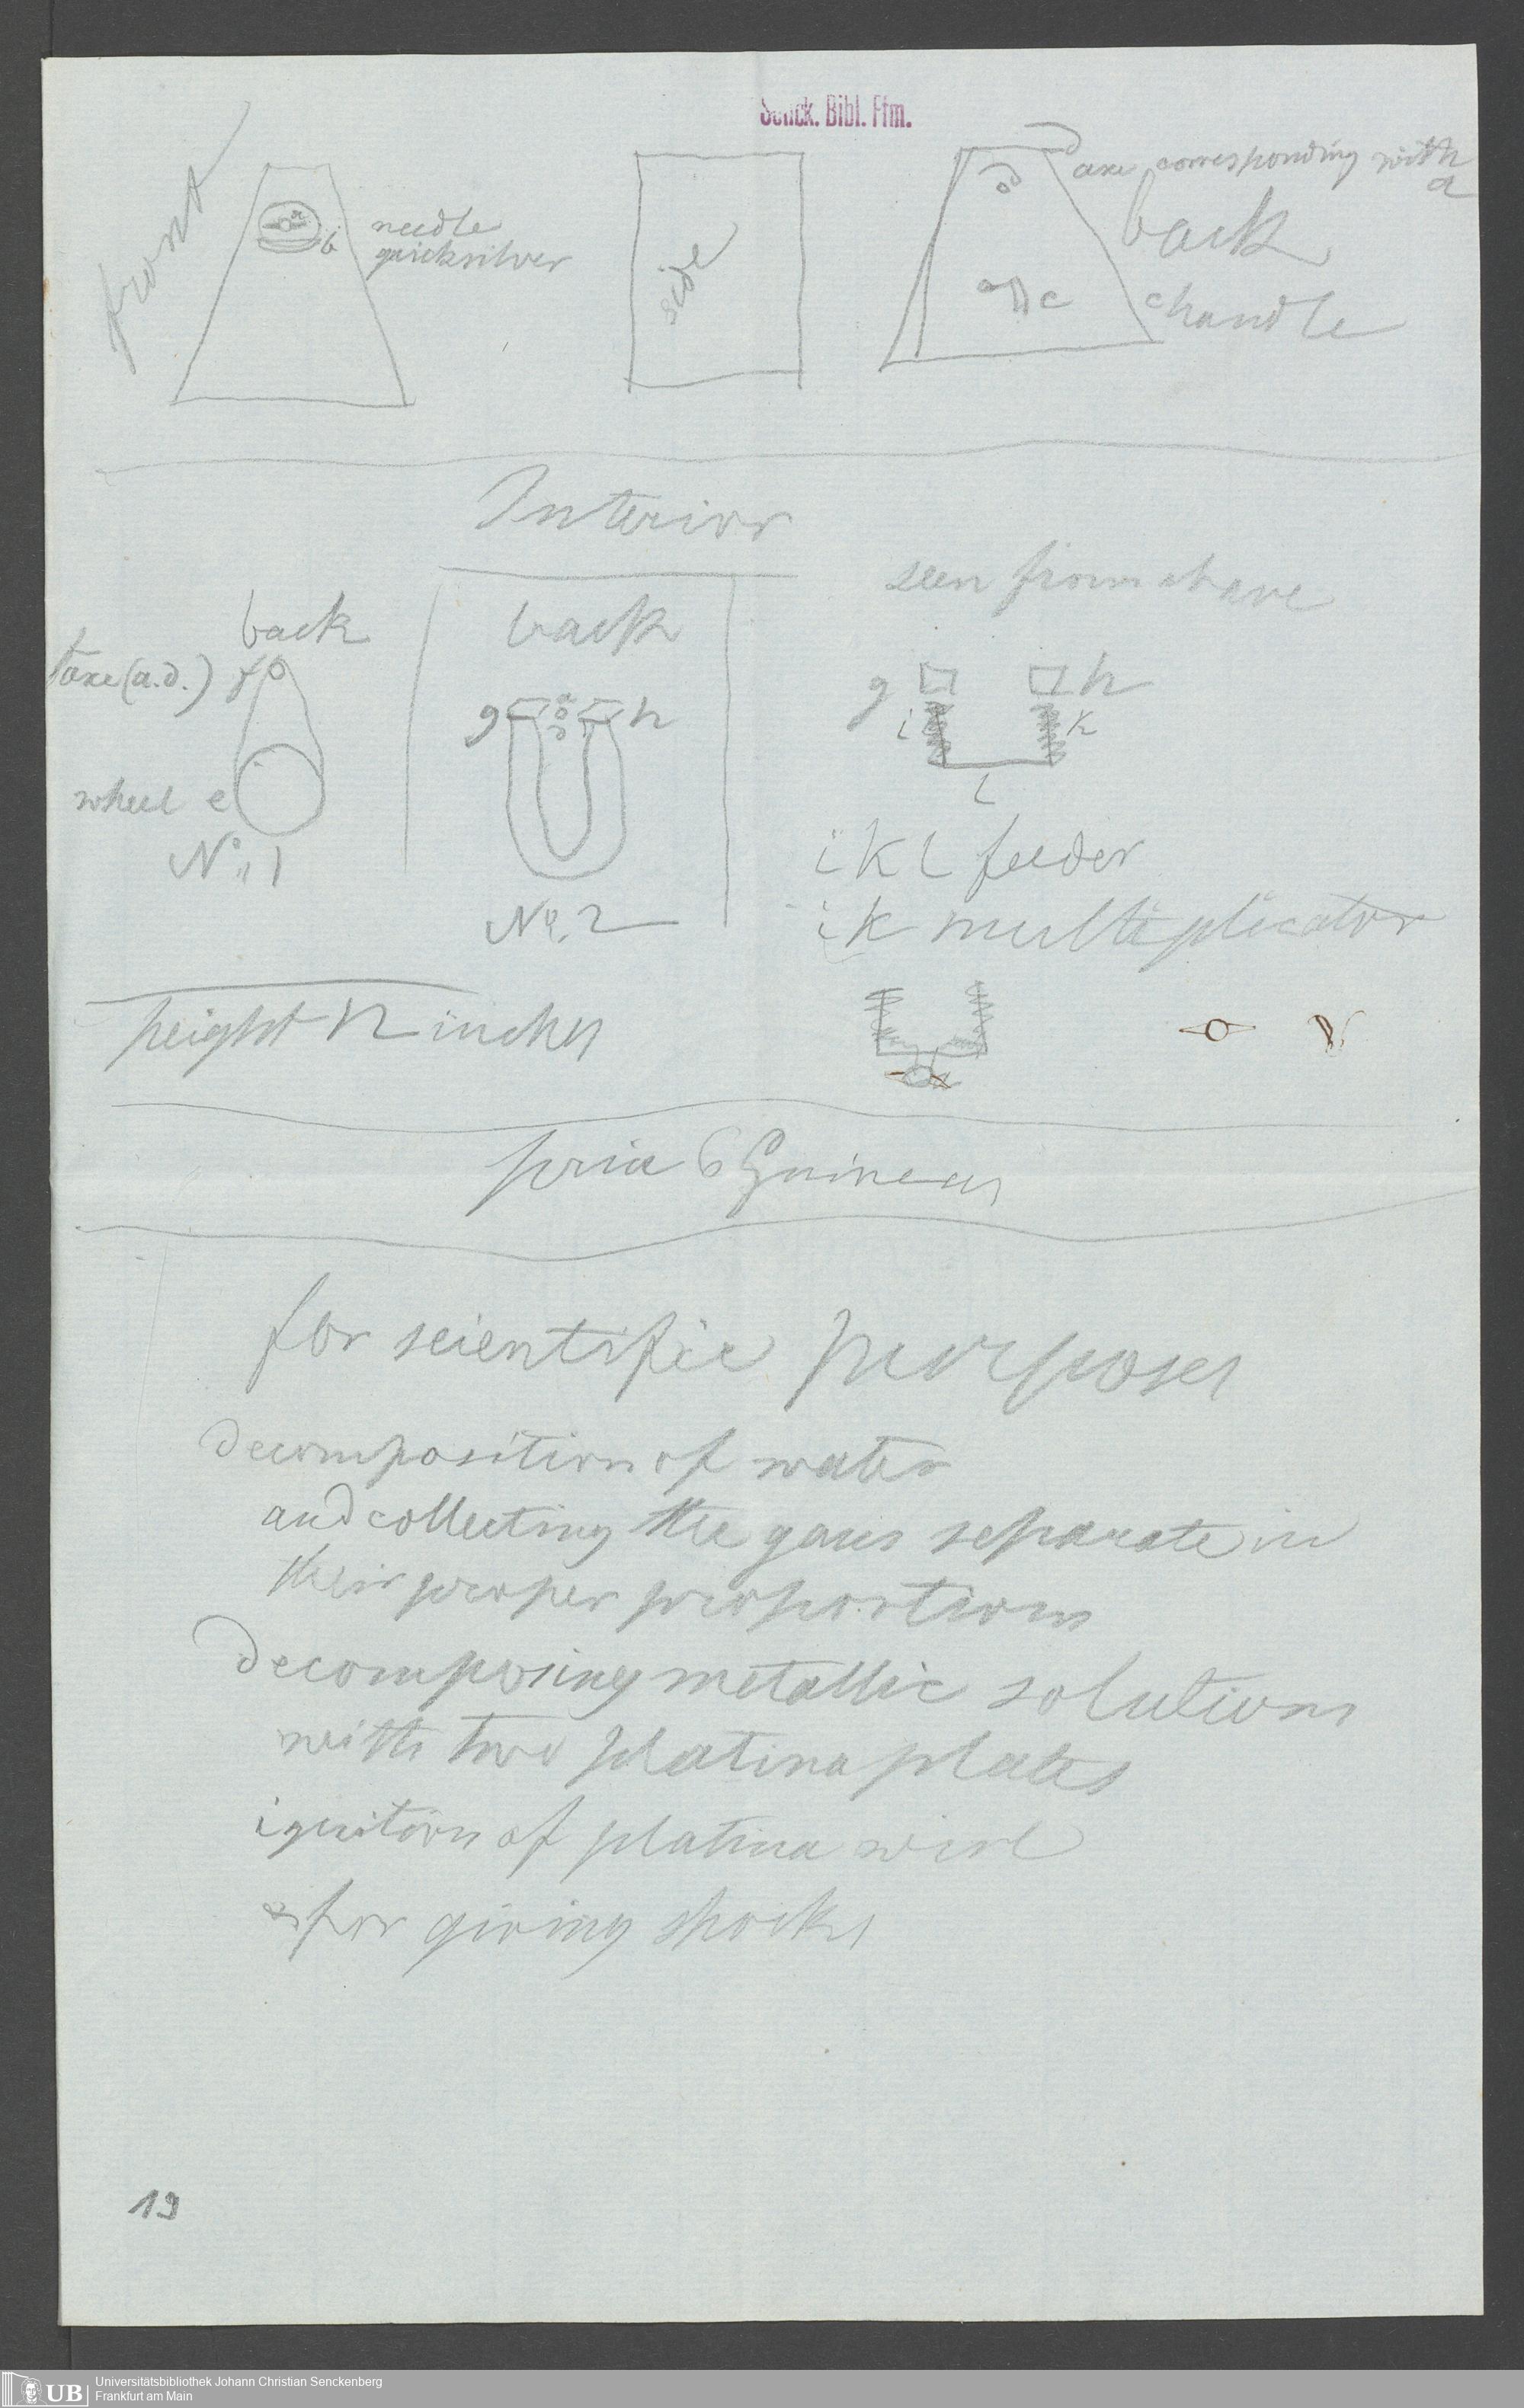 Senck. Bibl. Ffm.
front
a
b
needle
quicksilver
side
d
axe corresponding with
a
back
c
c handle
Interior
back
axe (a.d.) f
wheel e
No. 1
back
g h
No. 2
seen from above
g h
i k
l
i k l feeder
i k multiplicator
height 12 inches
price 6 Guineas
for scientific purposes
decomposition of water
and collecting the gases separate in
their proper proportions
decomposing metallic solutions
with two platina plates
ignition of platina wire
for giving shocks
19
UB
Universitätsbibliothek Johann Christian Senckenberg
Frankfurt am Main